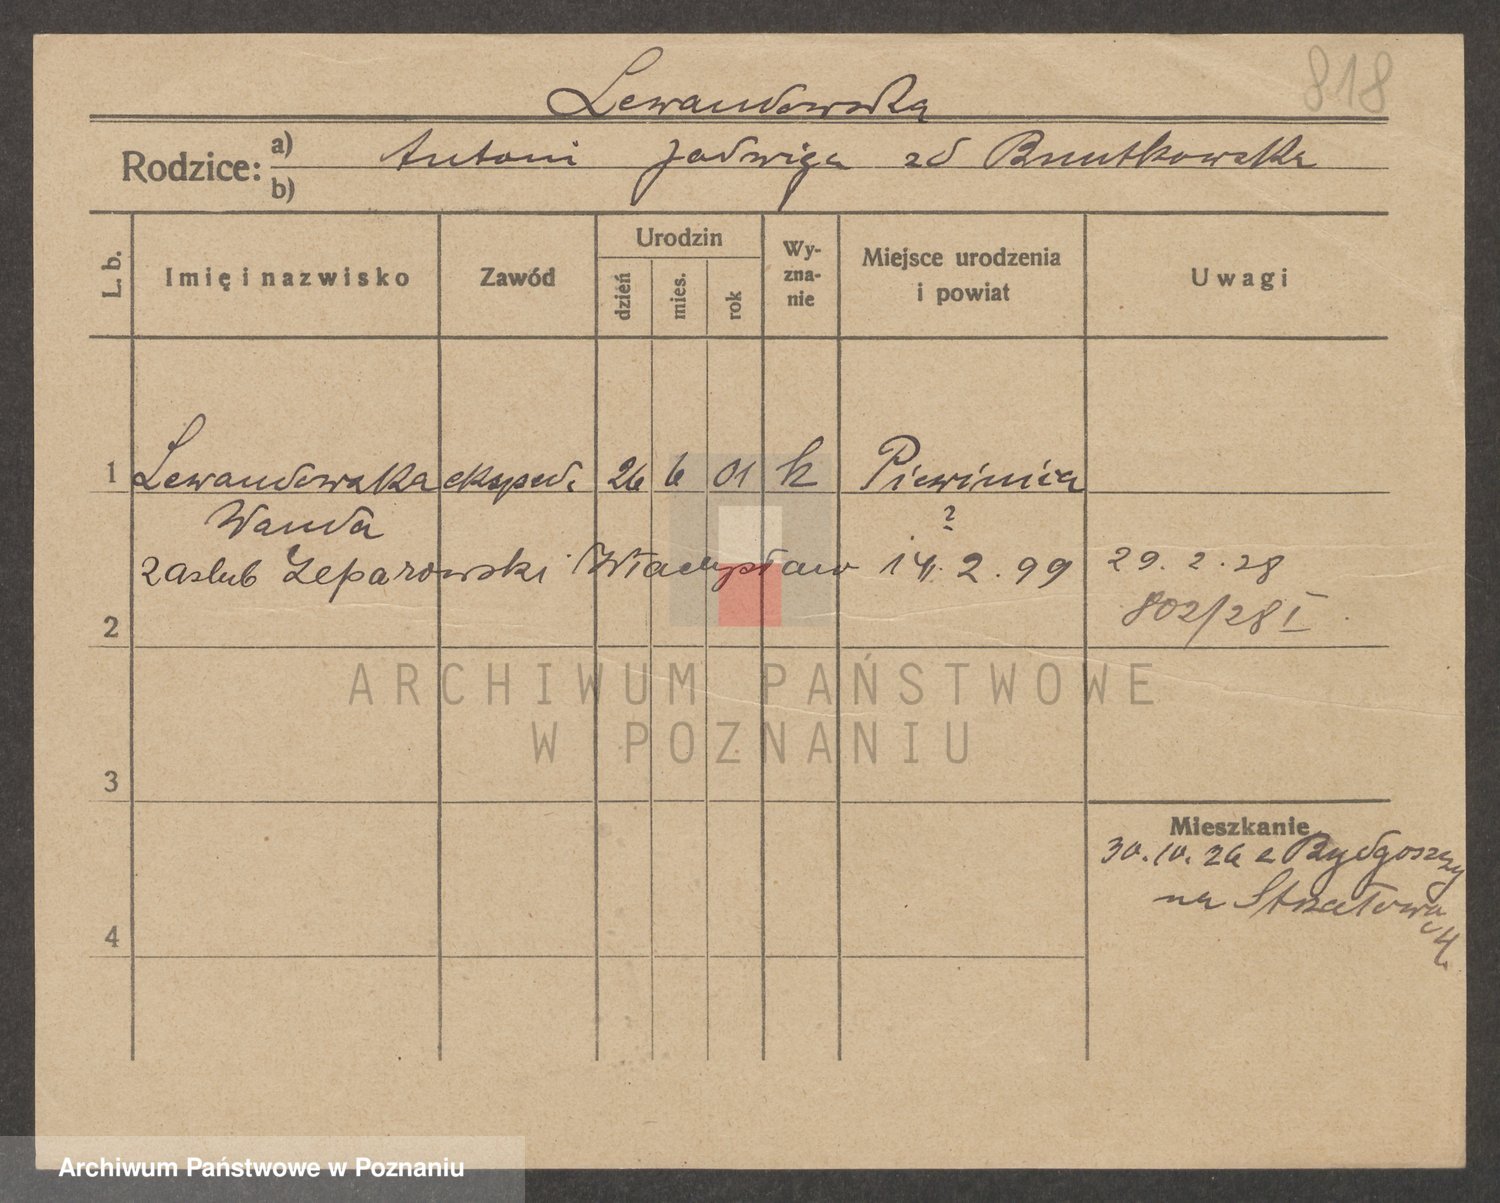 818
Lewandowska
Rodzice: a) Antoni Jadwiga zd Bnutkowska
b)
L. b. Imię i nazwisko Zawód Urodzin dzień mies. rok Wy-zna-nie Miejsce urodzenia i powiat Uwagi
1 Lewandowska eksped. 26 6 01 k Piewinica
Wanda ?
zaslub Żeparowski Władysław 14. 2. 99 29. 2. 28
802/28 I
2
ARCHIWUM PAŃSTWOWE
W POZNANIU
3
Mieszkanie
30.10.26 z Bydgoszczy
na Strzałowa
4
4.
Archiwum Państwowe w Poznaniu